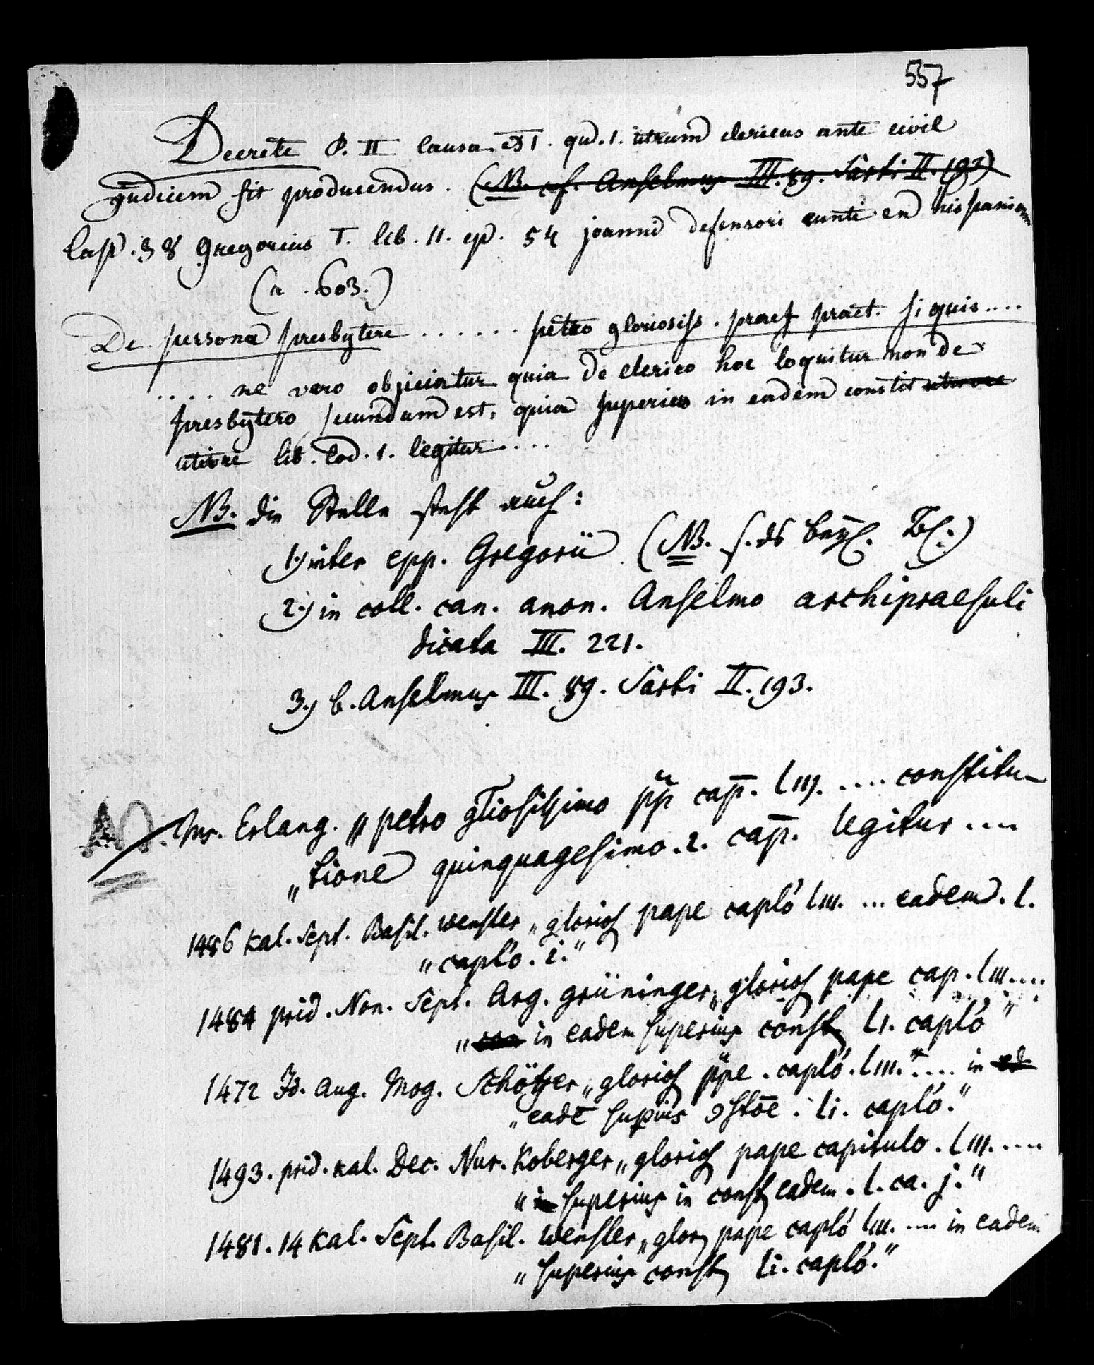 557
Decrete P. II Causa XI. qu. 1. utrum clericus ante civil
judicem sit producendus. (NB. cf. Anselmus III. 89. Sarti II. 193)
Cap. 38 Gregorius I. lib. 11. ep. 54 joanni defensori eunti en hispaniam
(a. 603.)
De persona presbytere ...... petro gloriosiss. praef praet. si quis....
.... ne vero objiciatur quia de clerico hoc loquitur non de
presbytero secundum est, quia superius in eadem constit
lib. Cod. 1. legitur....
NB. die Stelle steht auch:
1.) inter epp. Gregorii (NB. s. ds
2.) in coll. can. anon. Anselmo archipraesuli
dicata III. 221.
3.) b. Anselmus III. 89. Sarti II. 193.
Ms. Erlang. „petro gliosissimo pp cap. liij. .... constitu-
„tione quinquagesimo. 2. cap. legitur ....
1486 kal. Sept. Basil. Wensler „glorios pape caplo liii. ... eadem. l.
„caplo. i."
1484 prid. Non. Sept. Arg. grüninger „glorios pape cap. liii....
„in eadem superius const li. caplo"
1472 Id. Aug. Mog. Schöffer „glorios ppe. caplo. liii. .... in
„eadē supius 9stōe. li. caplo."
1493. prid. kal. Dec. Nur. Koberger „glorios pape capitulo. liii. ....
„superius in const eadem. l. ca. j."
1481. 14 kal. Sept. Basil. Wensler „glor pape caplo liii. .... in eadem
„superius const li. caplo."